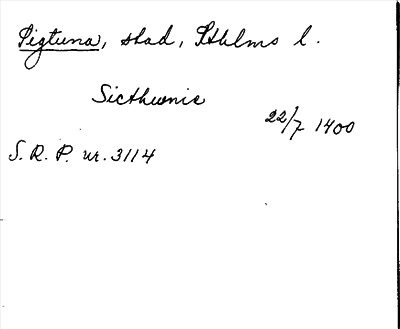 Sigtuna, stad, Sthlms l.
Sicthunie
22/7 1400
S. R. P. nr. 3114